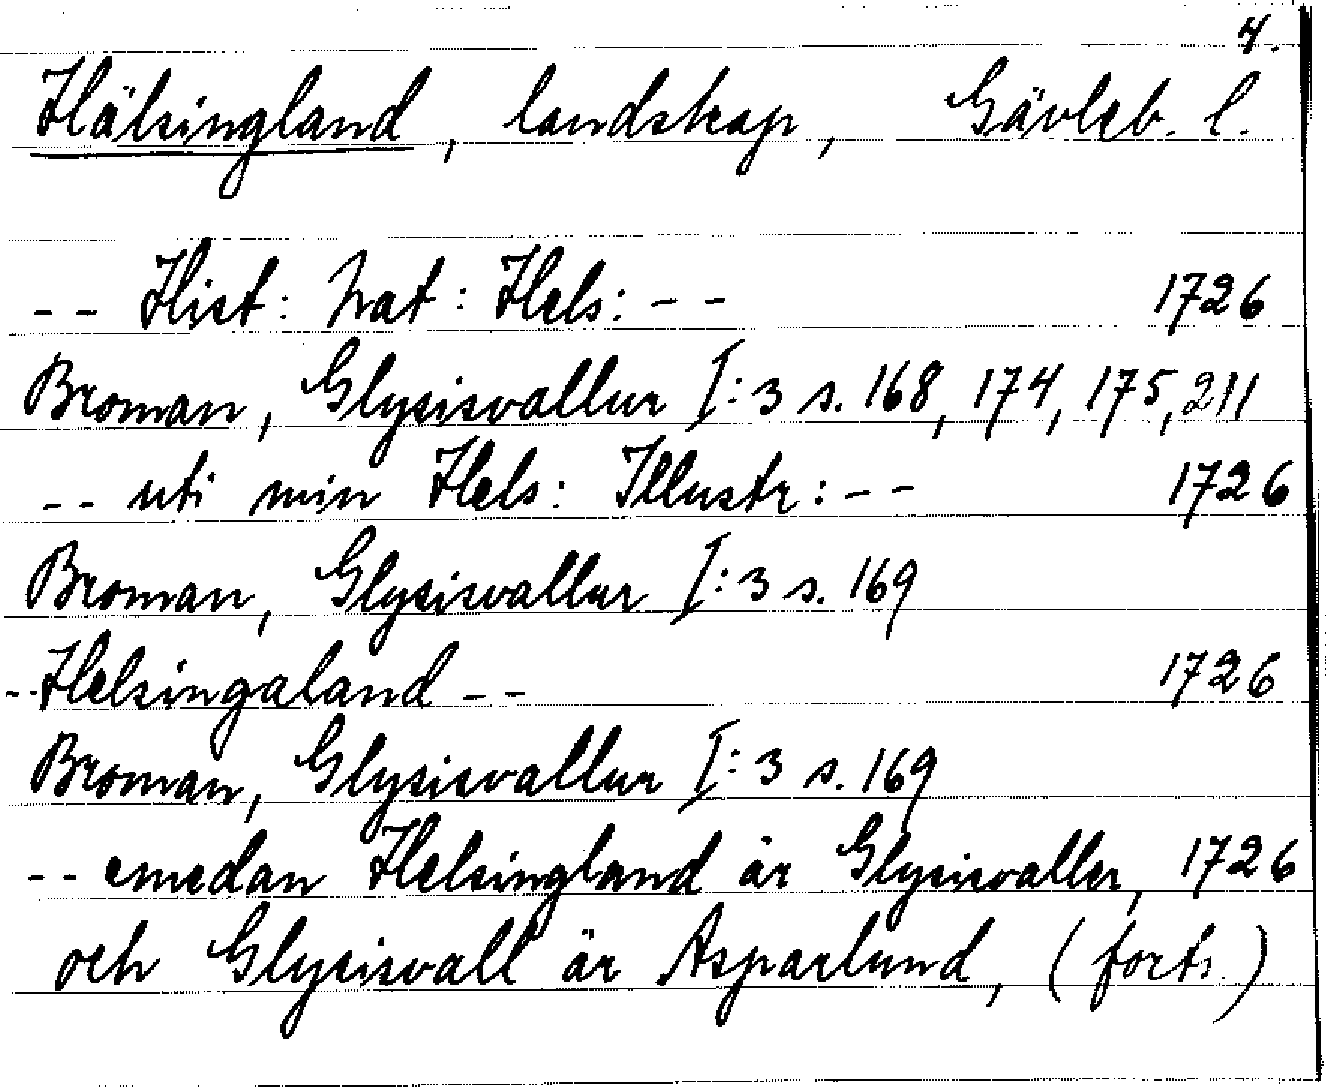 4.
Hälsingland, landskap, Gävleb. l.
-- Hist: Nat: Hels: -- 1726
Broman, Glysisvallur I:3 s. 168, 174, 175, 211
-- uti min Hels: Illustr: -- 1726
Broman, Glysisvallur I:3 s. 169
-- Helsingaland -- 1726
Broman, Glysisvallur I:3 s. 169
-- emedan Helsingland är Glysisvaller, 1726
och Glysisvall är Asparlund, (forts.)